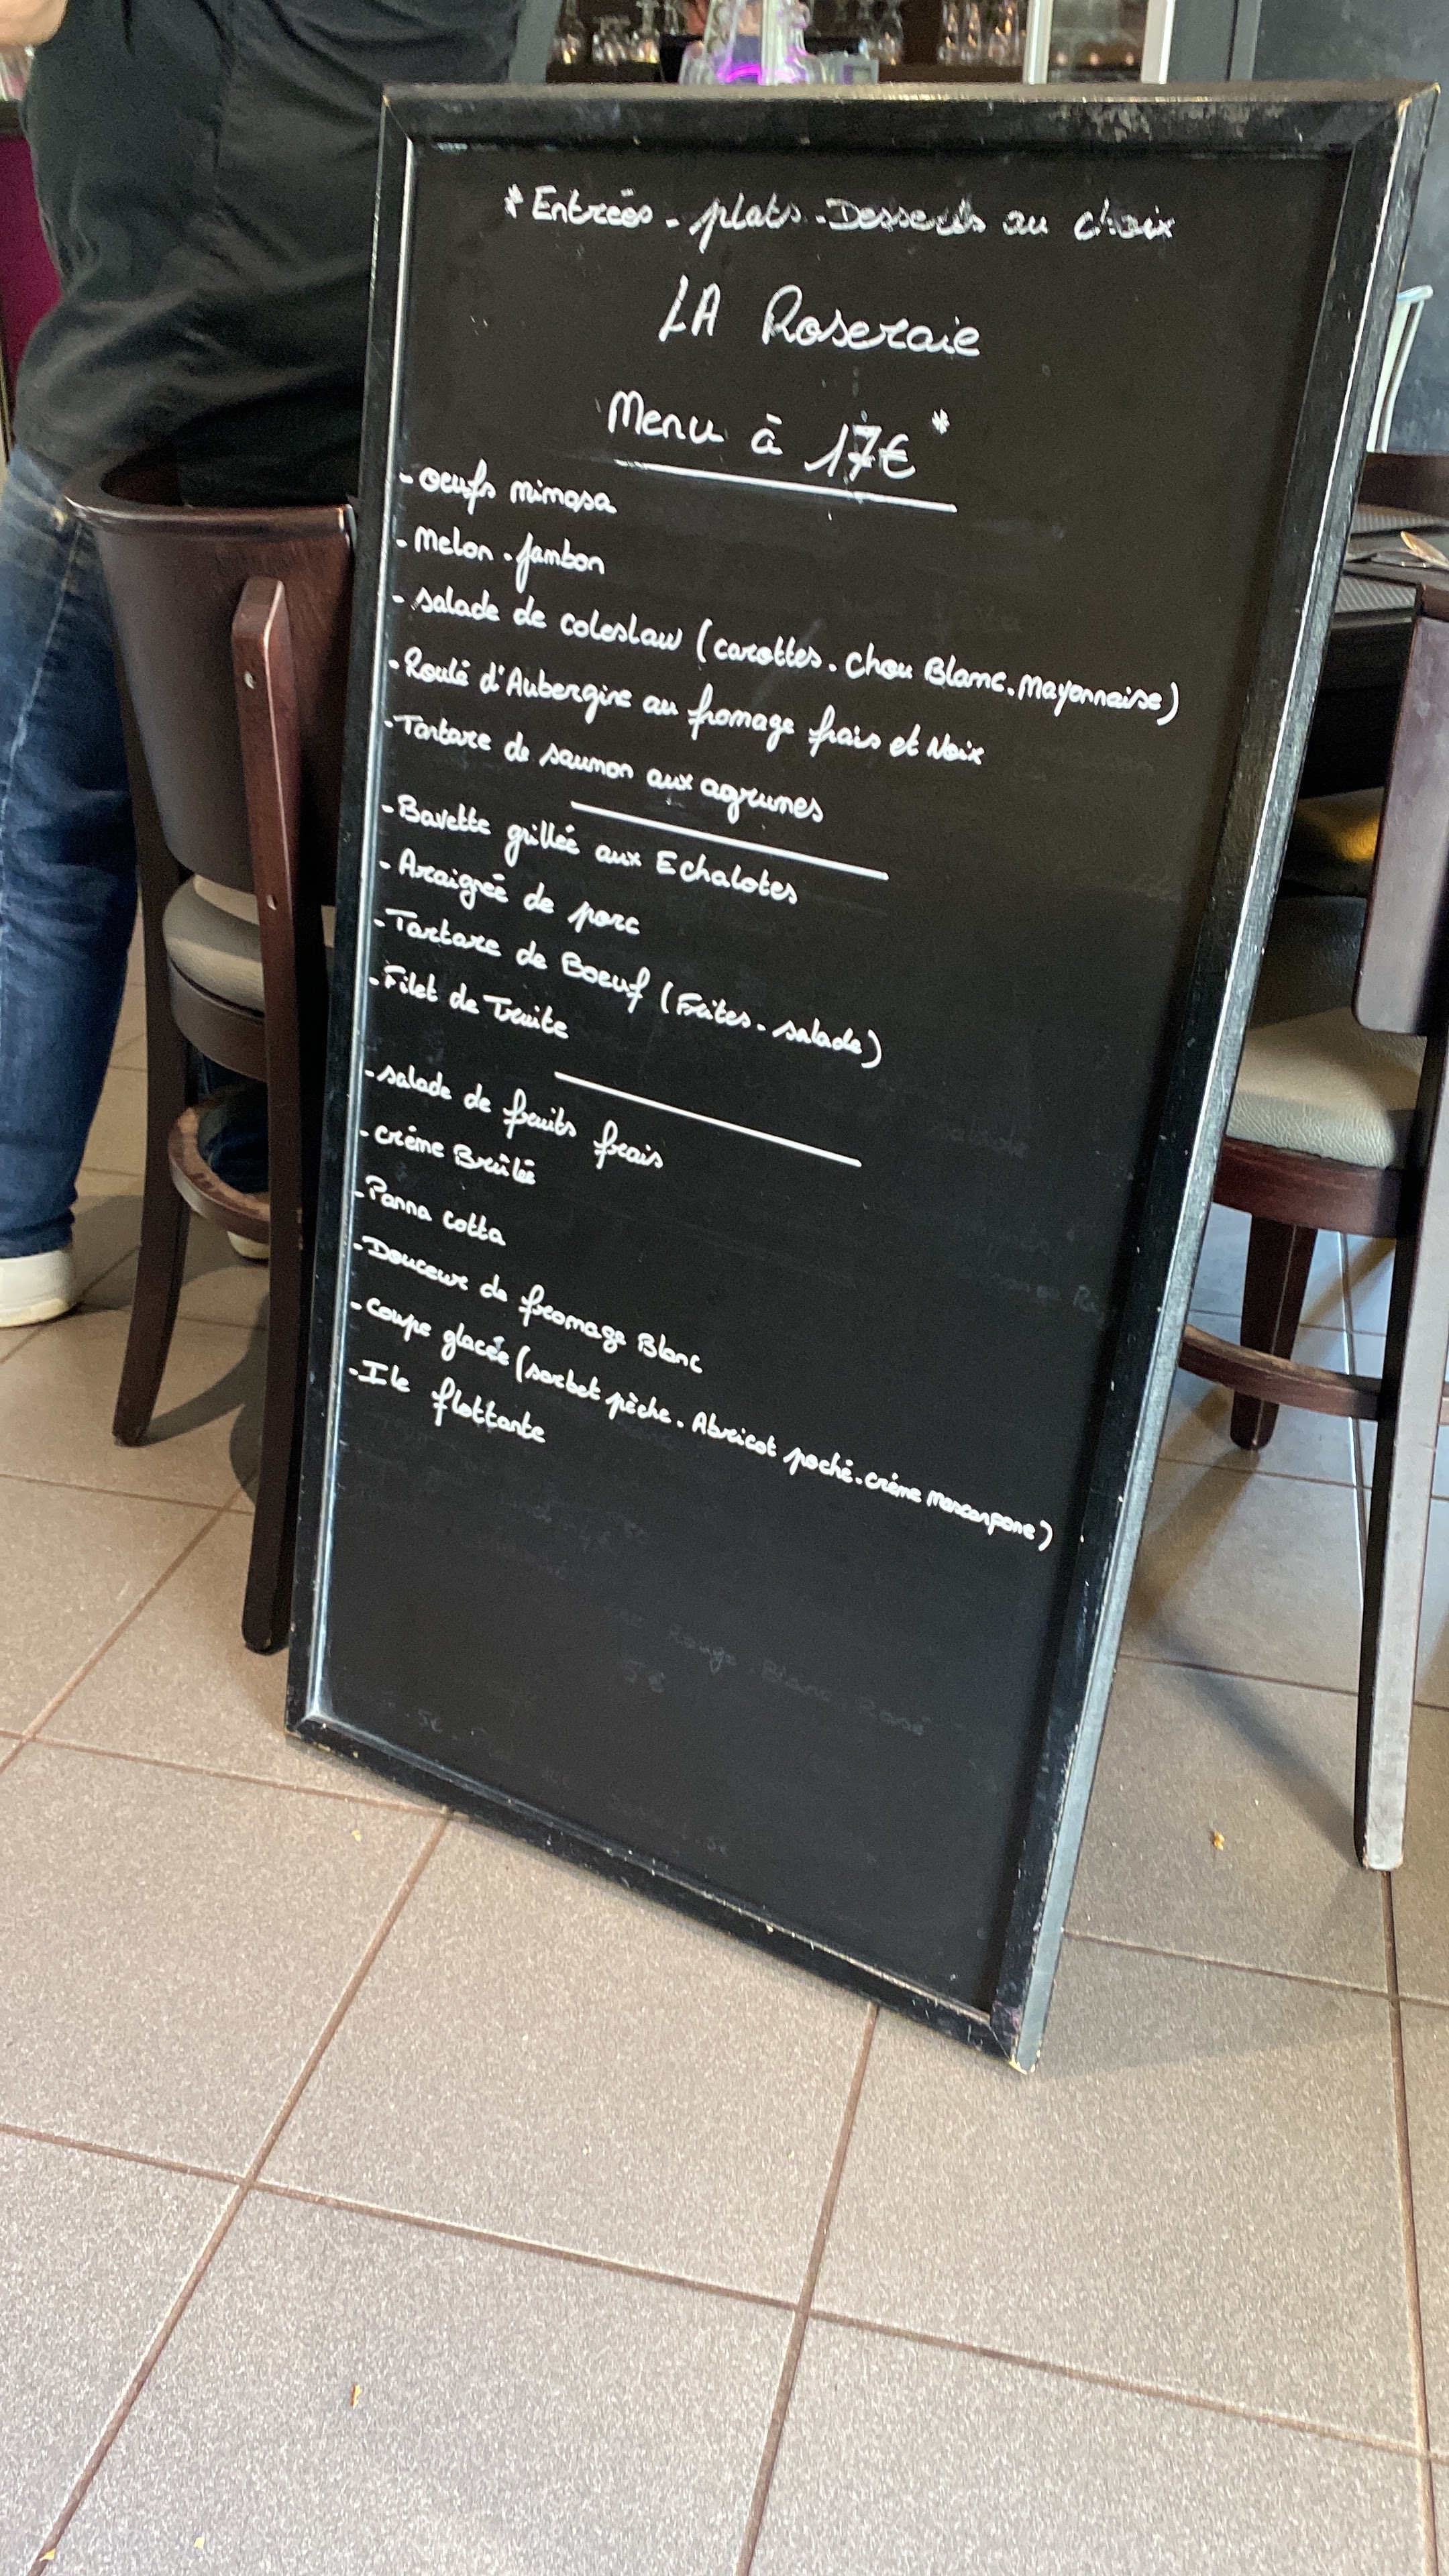 * Entrées - plats - Desserts au choix
LA Roseraie
Menu à 17€ *
- oeufs mimosa
- Melon - jambon
- salade de coleslaw (carottes - chou Blanc - mayonnaise)
- Roulé d'Aubergine au fromage frais et Noix
- Tartare de saumon aux agrumes
- Bavette grillée aux Echalotes
- Araignée de porc
- Tartare de Boeuf (Frites - salade)
- Filet de Truite
- salade de fruits frais
- crème Brûlée
- Panna cotta
- Douceur de fromage Blanc
- Coupe glacée (sorbet pèche - Abricot poché - crème Mascarpone)
- Ile flottante
Rouge - Blanc - Rosé
5€
5€
5€